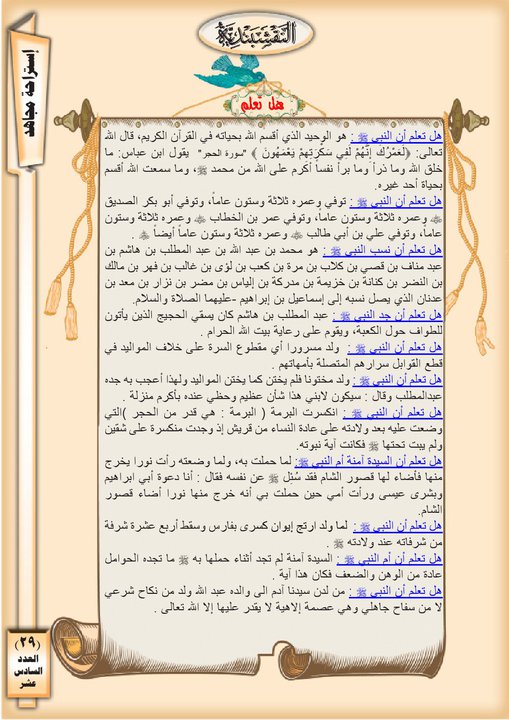 النقشبندية
إستراحة مجاهد
هل تعلم
هل تعلم أن النبي ﷺ : هو الوحيد الذي أقسم الله بحياته في القرآن الكريم، قال الله
تعالى: ﴿لَعَمْرُكَ إِنَّهُمْ لَفِي سَكْرَتِهِمْ يَعْمَهُونَ ﴾ "سورة الحجر" يقول ابن عباس: ما
خلق الله وما ذرأ وما برأ نفساً أكرم على الله من محمد ﷺ، وما سمعت الله أقسم
بحياة أحد غيره.
هل تعلم أن النبي ﷺ : توفي وعمره ثلاثة وستون عاماً، وتوفي أبو بكر الصديق
وعمره ثلاثة وستون عاماً، وتوفي عمر بن الخطاب وعمره ثلاثة وستون
عاماً، وتوفي علي بن أبي طالب وعمره ثلاثة وستون عاماً أيضاً .
هل تعلم أن نسب النبي ﷺ : هو محمد بن عبد الله بن عبد المطلب بن هاشم بن
عبد مناف بن قصي بن كلاب بن مرة بن كعب بن لؤى بن غالب بن فهر بن مالك
بن النضر بن كنانة بن خزيمة بن مدركة بن إلياس بن مضر بن نزار بن معد بن
عدنان الذي يصل نسبه إلى إسماعيل بن إبراهيم -عليهما الصلاة والسلام.
هل تعلم أن جد النبي ﷺ : عبد المطلب بن هاشم كان يسقي الحجيج الذين يأتون
للطواف حول الكعبة، ويقوم على رعاية بيت الله الحرام .
هل تعلم أن النبي ﷺ : ولد مسرورا أي مقطوع السرة على خلاف المواليد في
قطع القوابل سرارهم المتصلة بأمهاتهم .
هل تعلم أن النبي ﷺ : ولد مختونا فلم يختن كما يختن المواليد ولهذا أعجب به جده
عبدالمطلب وقال : سيكون لابني هذا شأن عظيم وحظي عنده بأكرم منزلة .
هل تعلم أن النبي ﷺ : انكسرت البرمة ( البرمة : هي قدر من الحجر )التي
وضعت عليه بعد ولادته على عادة النساء من قريش إذ وجدت منكسرة على شقين
ولم يبت تحتها ﷺ فكانت آية نبوته.
هل تعلم أن السيدة آمنة أم النبي ﷺ: لما حملت به، ولما وضعته رأت نورا يخرج
منها فأضاء لها قصور الشام فقد سُئِل ﷺ عن نفسه فقال : أنا دعوة أبي ابراهيم
وبشرى عيسى ورأت أمي حين حملت بي أنه خرج منها نورا أضاء قصور
الشام.
هل تعلم أن النبي ﷺ : لما ولد ارتج إيوان كسرى بفارس وسقط أربع عشرة شرفة
من شرفاته عند ولادته ﷺ .
هل تعلم أن أم النبي ﷺ : السيدة آمنة لم تجد أثناء حملها به ﷺ ما تجده الحوامل
عادة من الوهن والضعف فكان هذا آية .
هل تعلم أن النبي ﷺ : من لدن سيدنا آدم الى والده عبد الله ولد من نكاح شرعي
لا من سفاح جاهلي وهي عصمة إلاهية لا يقدر عليها إلا الله تعالى .
(٢٩)
العدد
السادس
عشر